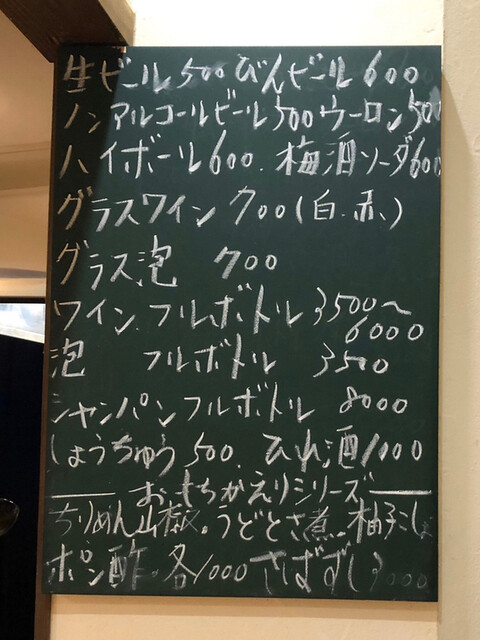 生ビール500 びんビール600
ノンアルコールビール500 ウーロン500
ハイボール600. 梅酒ソーダ600
グラスワイン 700(白.赤.)
グラス泡 700
ワイン.フルボトル 3500〜
6000
泡 フルボトル 3500
シャンパンフルボトル 8000
しょうちゅう500. ひれ酒1000
おもちかえりシリーズ
ちりめん山椒。うどとさ煮。柚子こしょ
ポン酢。各1000 さばずし